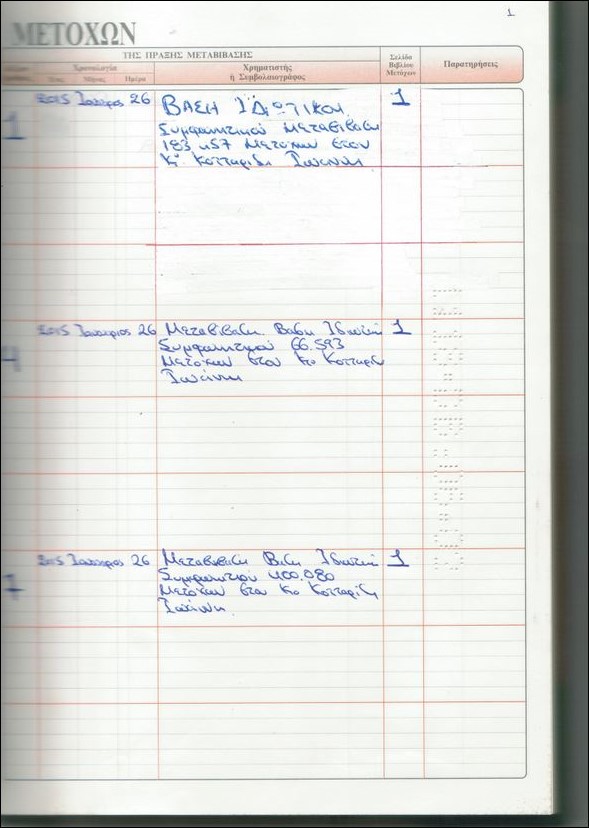 1
ΜΕΤΟΧΩΝ
ΤΗΣ ΠΡΑΞΗΣ ΜΕΤΑΒΙΒΑΣΗΣ
Χρονολογία
Έτος Μήνας Ημέρα
Χρηματιστής
ή Συμβολαιογράφος
Σελίδα
Βιβλίου
Μετόχων
Παρατηρήσεις
1 2015 Ιανουάριος 26 ΒΑΣΗ ΙΔΙΩΤΙΚΟΥ 1
Συμφωνητικού Μεταβίβαση
183.457 Μετοχών στον
Κο. Κοτταρίδη Ιωάννη
4 2015 Ιανουάριος 26 Μεταβίβαση Βάση Ιδιωτικ 1
Συμφωνητικού 66.593
Μετοχών στον Κο Κοτταρίδη
Ιωάννη
7 2015 Ιανουάριος 26 Μεταβίβαση Βάση Ιδιωτικ 1
Συμφωνητικού 400.080
Μετοχών στον Κο Κοτταρίδη
Ιωάννη.